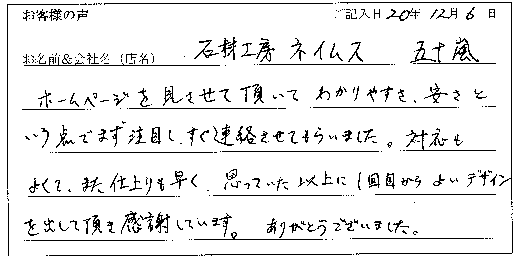 お客様の声 ご記入日 20年 12月 6日
お名前&会社名（店名） 石材工房 ネイムス 五十嵐
ホームページを見させて頂いて わかりやすさ、安さと
いう点でまず注目し、すぐ連絡させてもらいました。対応も
よくて、また仕上りも早く、思っていた以上に1回目からよいデザイン
を出して頂き感謝しています。 ありがとうございました。